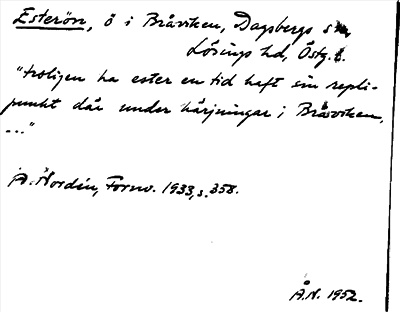 Esterön, ö i Bråviken, Dagsbergs sn,
Lösings hd, Östg.
"troligen ha ester en tid haft sin repli-
punkt där under härjningar i Bråviken,
..."
A. Nordén, Fornv. 1933, s. 358.
Å.N. 1952.